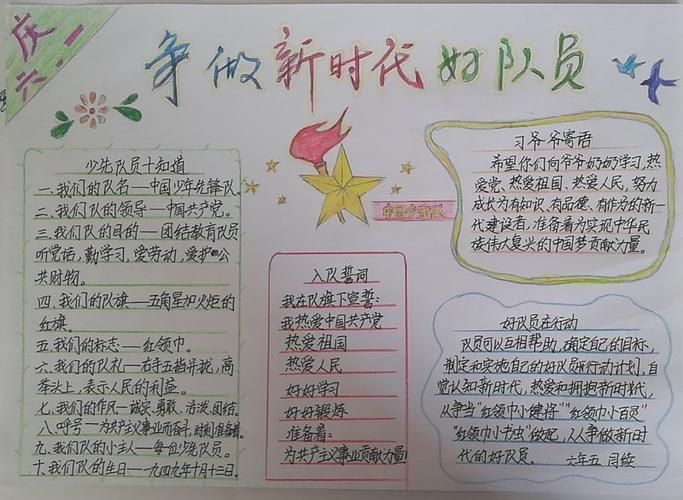 庆六·一
争做新时代好队员
少先队员十知道
一、我们的队名—中国少年先锋队。
二、我们队的领导—中国共产党。
三、我们队的目的—团结教育队员
听党话，勤学习，爱劳动，爱护公
共财物。
四、我们的队旗—五角星加火炬的
红旗。
五、我们的标志—红领巾。
六、我们的队礼—右手五指并拢，高
举头上，表示人民的利益。
七、我们的作风—诚实、勇敢、活泼、团结。
八、呼号—为共产主义事业而奋斗，时刻准备着。
九、我们队的小主人—每位少先队员。
十、我们队的生日—一九四九年十月十三日。
中国少先队
入队誓词
我在队旗下宣誓：
我热爱中国共产党
热爱祖国
热爱人民
好好学习
好好锻炼
准备着：
为共产主义事业贡献力量
习爷爷寄语
希望你们向爷爷奶奶学习，热
爱党、热爱祖国、热爱人民，努力
成长为有知识、有品德、有作为的新一
代建设者，准备着为实现中华民
族伟大复兴的中国梦贡献力量。
好队员在行动
队员可以互相帮助，确定自己的目标，
制定和实施自己的好队员行动计划，自
觉认知新时代，热爱和拥抱新时代，
从争当"红领巾小健将""红领巾小百灵"
"红领巾小书虫"做起，人人争做新时
代的好队员。
六年五 闫续